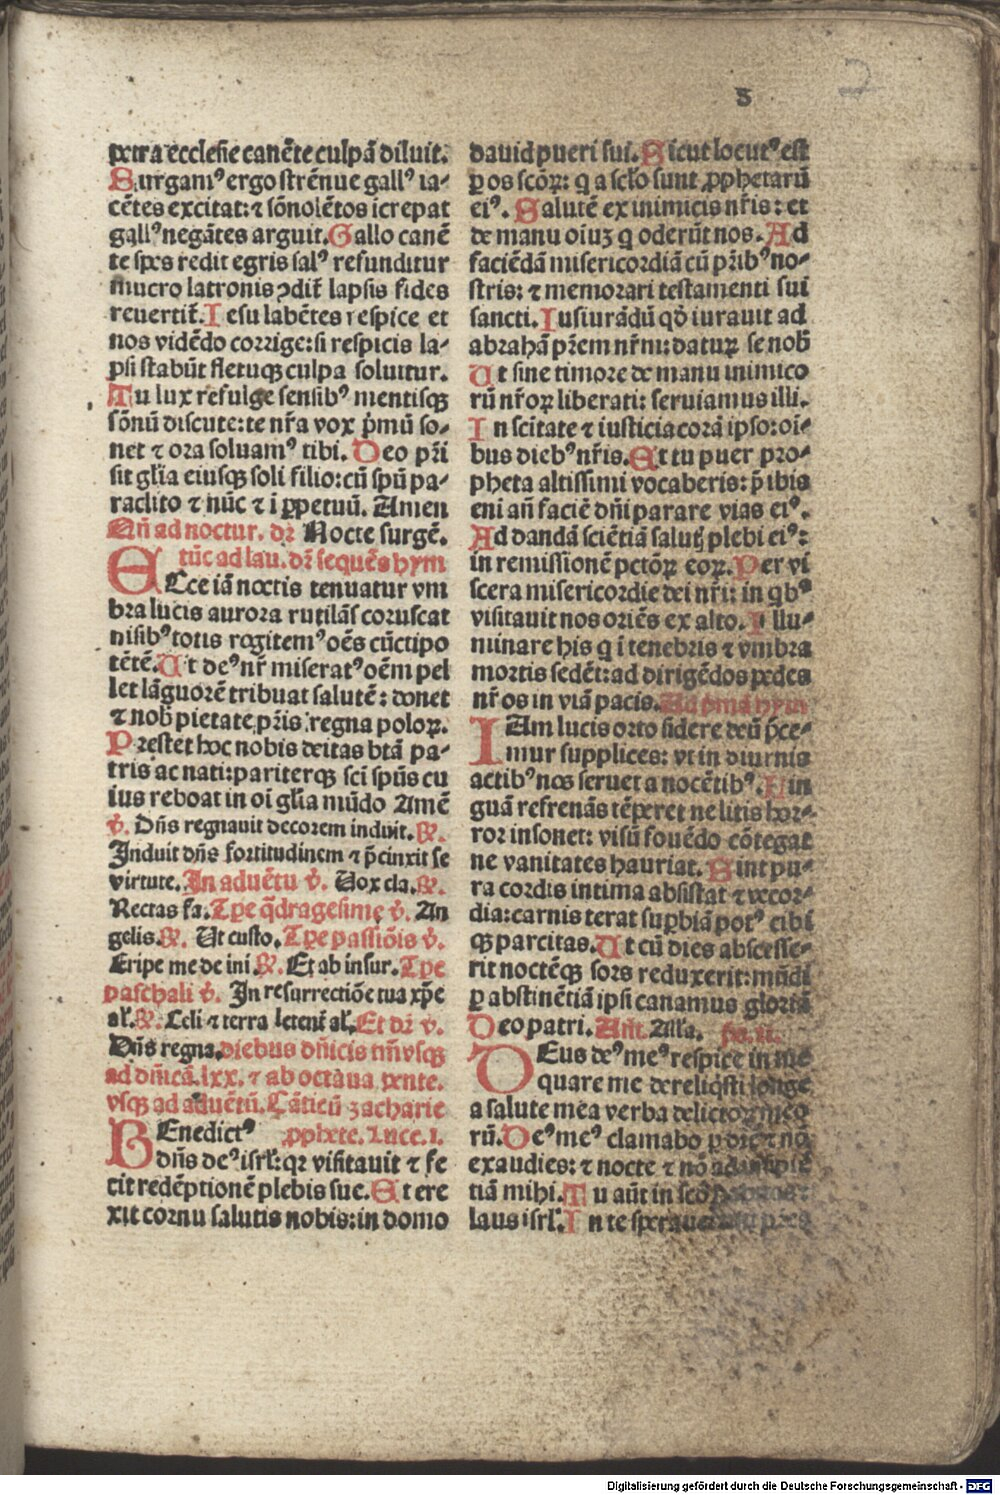 3
2
petra ecclesie canēte culpā diluit.
Surgamꝰ ergo strēnue gallꝰ ia-
cētes excitat: ⁊ sōnolētos īcrepat
gallꝰ negātes arguit. Gallo canē
te spes redit egris salꝰ refunditur
mucro latronis ↄdit̄ lapsis fides
reuertit̄. Iesu labētes respice et
nos vidēdo corrige: si respicis la-
psi stabūt fletuqꝫ culpa soluitur.
Tu lux refulge sensibꝰ mentisqꝫ
sōnū discute: te nr̄a vox p̄mū so-
net ⁊ ora soluamꝰ tibi. Deo pr̄i
sit gl̄ia eiusqꝫ soli filio: cū spū pa-
raclito ⁊ nūc ⁊ ī ꝑpetuū. Amen
Qn̄ ad noctur. dꝛ̄ Nocte surgē.
tūc ad lau. dꝛ̄ sequēs hym
ECce iā noctis tenuatur vm
bra lucis aurora rutilās coruscat
nisibꝰ totis rogitemꝰ oēs cūctipo
tētē. Ut deꝰ nr̄ miseratꝰ oēm pel
let lāguorē tribuat salutē: donet
⁊ nob̄ pietate pr̄is regna poloꝝ.
Prestet hoc nobis deitas btā pa-
tris ac nati: pariterqꝫ sci spūs cu
ius reboat in oī gl̄ia mūdo Amē
℣. Dn̄s regnauit decorem induit. ℟.
Induit dn̄s fortitudinem ⁊ p̄cinxit se
virtute. In aduētu ℣. Uox cla. ℟.
Rectas fa. Tpe q̄dragesime ℣. An
gelis. ℟. Ut custo. Tpe passiōis ℣.
Eripe me de ini ℟. Et ab insur. Tpe
paschali ℣. In resurrectiōe tua xp̄e
al̄. ℟. Celi ⁊ terra letent̄ al̄. Et dꝛ̄ ℣.
Dn̄s regna. diebus dn̄icis īn̄vsqꝫ
ad dn̄icā. lxx. ⁊ ab octaua pente.
vsqꝫ ad aduētū. Cāticū zacharie
BEnedictꝰ ꝓphete. Luce. 1.
dn̄s deꝰ isrl̄: qꝛ visitauit ⁊ fe
cit redēptionē plebis sue. Et ere
xit cornu salutis nobis: in domo
dauid pueri sui. Sicut locutꝰ est
ꝑ os scōꝝ: q̄ a sclo sunt ꝓphetarū
eiꝰ. Salutē ex inimicis nr̄is: et
de manu oīuꝫ q̄ oderūt nos. Ad
faciēdā misericordiā cū pr̄ibꝰ no-
stris: ⁊ memorari testamenti sui
sancti. Iusiurādū qō iurauit ad
abrahā pr̄em nr̄m: daturꝝ se nob̄
Ut sine timore de manu inimico
rū nr̄oꝝ liberati: seruiamus illi.
In scitate ⁊ iusticia corā ipso: oī-
bus diebꝰ nr̄is. Et tu puer pro-
pheta altissimi vocaberis: p̄ibis
eni an̄ faciē dn̄i parare vias eiꝰ.
Ad dandā sciētiā salutꝭ plebi eiꝰ:
in remissionē pctōꝝ eoꝝ. Per vi
scera misericordie dei nr̄i: in qbꝰ
visitauit nos oriēs ex alto. Illu-
minare his q̄ ī tenebris ⁊ vmbra
mortis sedēt: ad dirigēdos pedes
nr̄os in viā pacis. Ad p̄mā hym
IAm lucis orto sidere deū p̄ce-
mur supplices: vt in diurnis
actibꝰ nos seruet a nocētibꝰ. Lin
guā refrenās tēperet ne litis hor-
ror insonet: visū fouēdo cōtegat
ne vanitates hauriat. Sint pu-
ra cordis intima absistat ⁊ vecor-
dia: carnis terat suꝑbiā potꝰ cibi
qꝫ parcitas. Ut cū dies abscesse-
rit noctēqꝫ sors reduxerit: mūdi
ꝑ abstinētiā ipsi canamus gloriā
Deo patri. Ant̄. Alla. ps. 21.
DEus deꝰ meꝰ respice in me
quare me dereliqsti longe
a salute mea verba delictoꝝ meo
rū. Deꝰ meꝰ clamabo ꝑ diē ⁊ nō
exaudies: ⁊ nocte ⁊ nō ad insipiē
tiā mihi. Tu aūt in scō habitas:
laus isrl̄. In te sperauerūt pr̄es
Digitalisierung gefördert durch die Deutsche Forschungsgemeinschaft - DFG